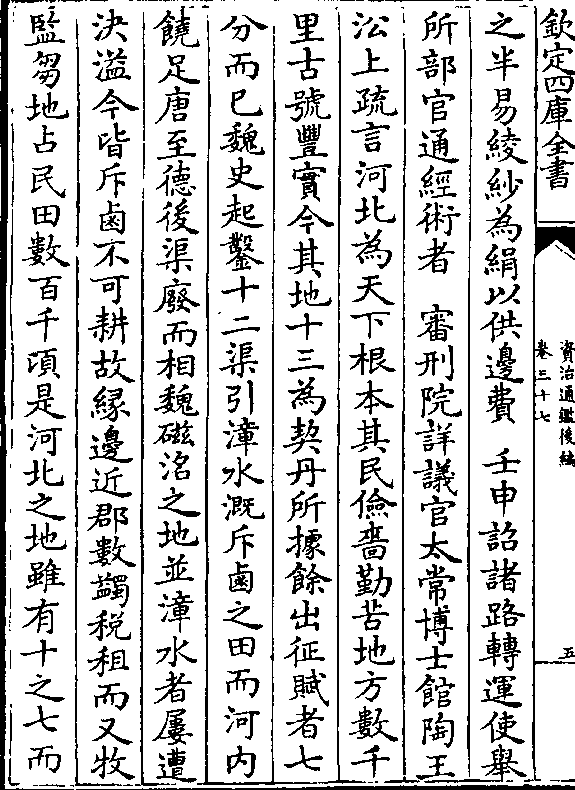 欽定四庫全書
資治通鑑後編
卷三十七
五
之半易綾紗為絹以供邊費　壬申詔諸路轉運使舉
所部官通經術者　審刑院詳議官太常博士館陶王
㳂上疏言河北為天下根本其民儉嗇勤苦地方數千
里古號豐實今其地十三為契丹所據餘出征賦者七
分而已魏史起鑿十二渠引漳水溉斥鹵之田而河内
饒足唐至德後渠廢而相魏磁洺之地並漳水者屢遭
決溢今皆斥鹵不可耕故緣邊近郡數蠲税租而又牧
監芻地占民田數百千頃是河北之地雖有十之七而